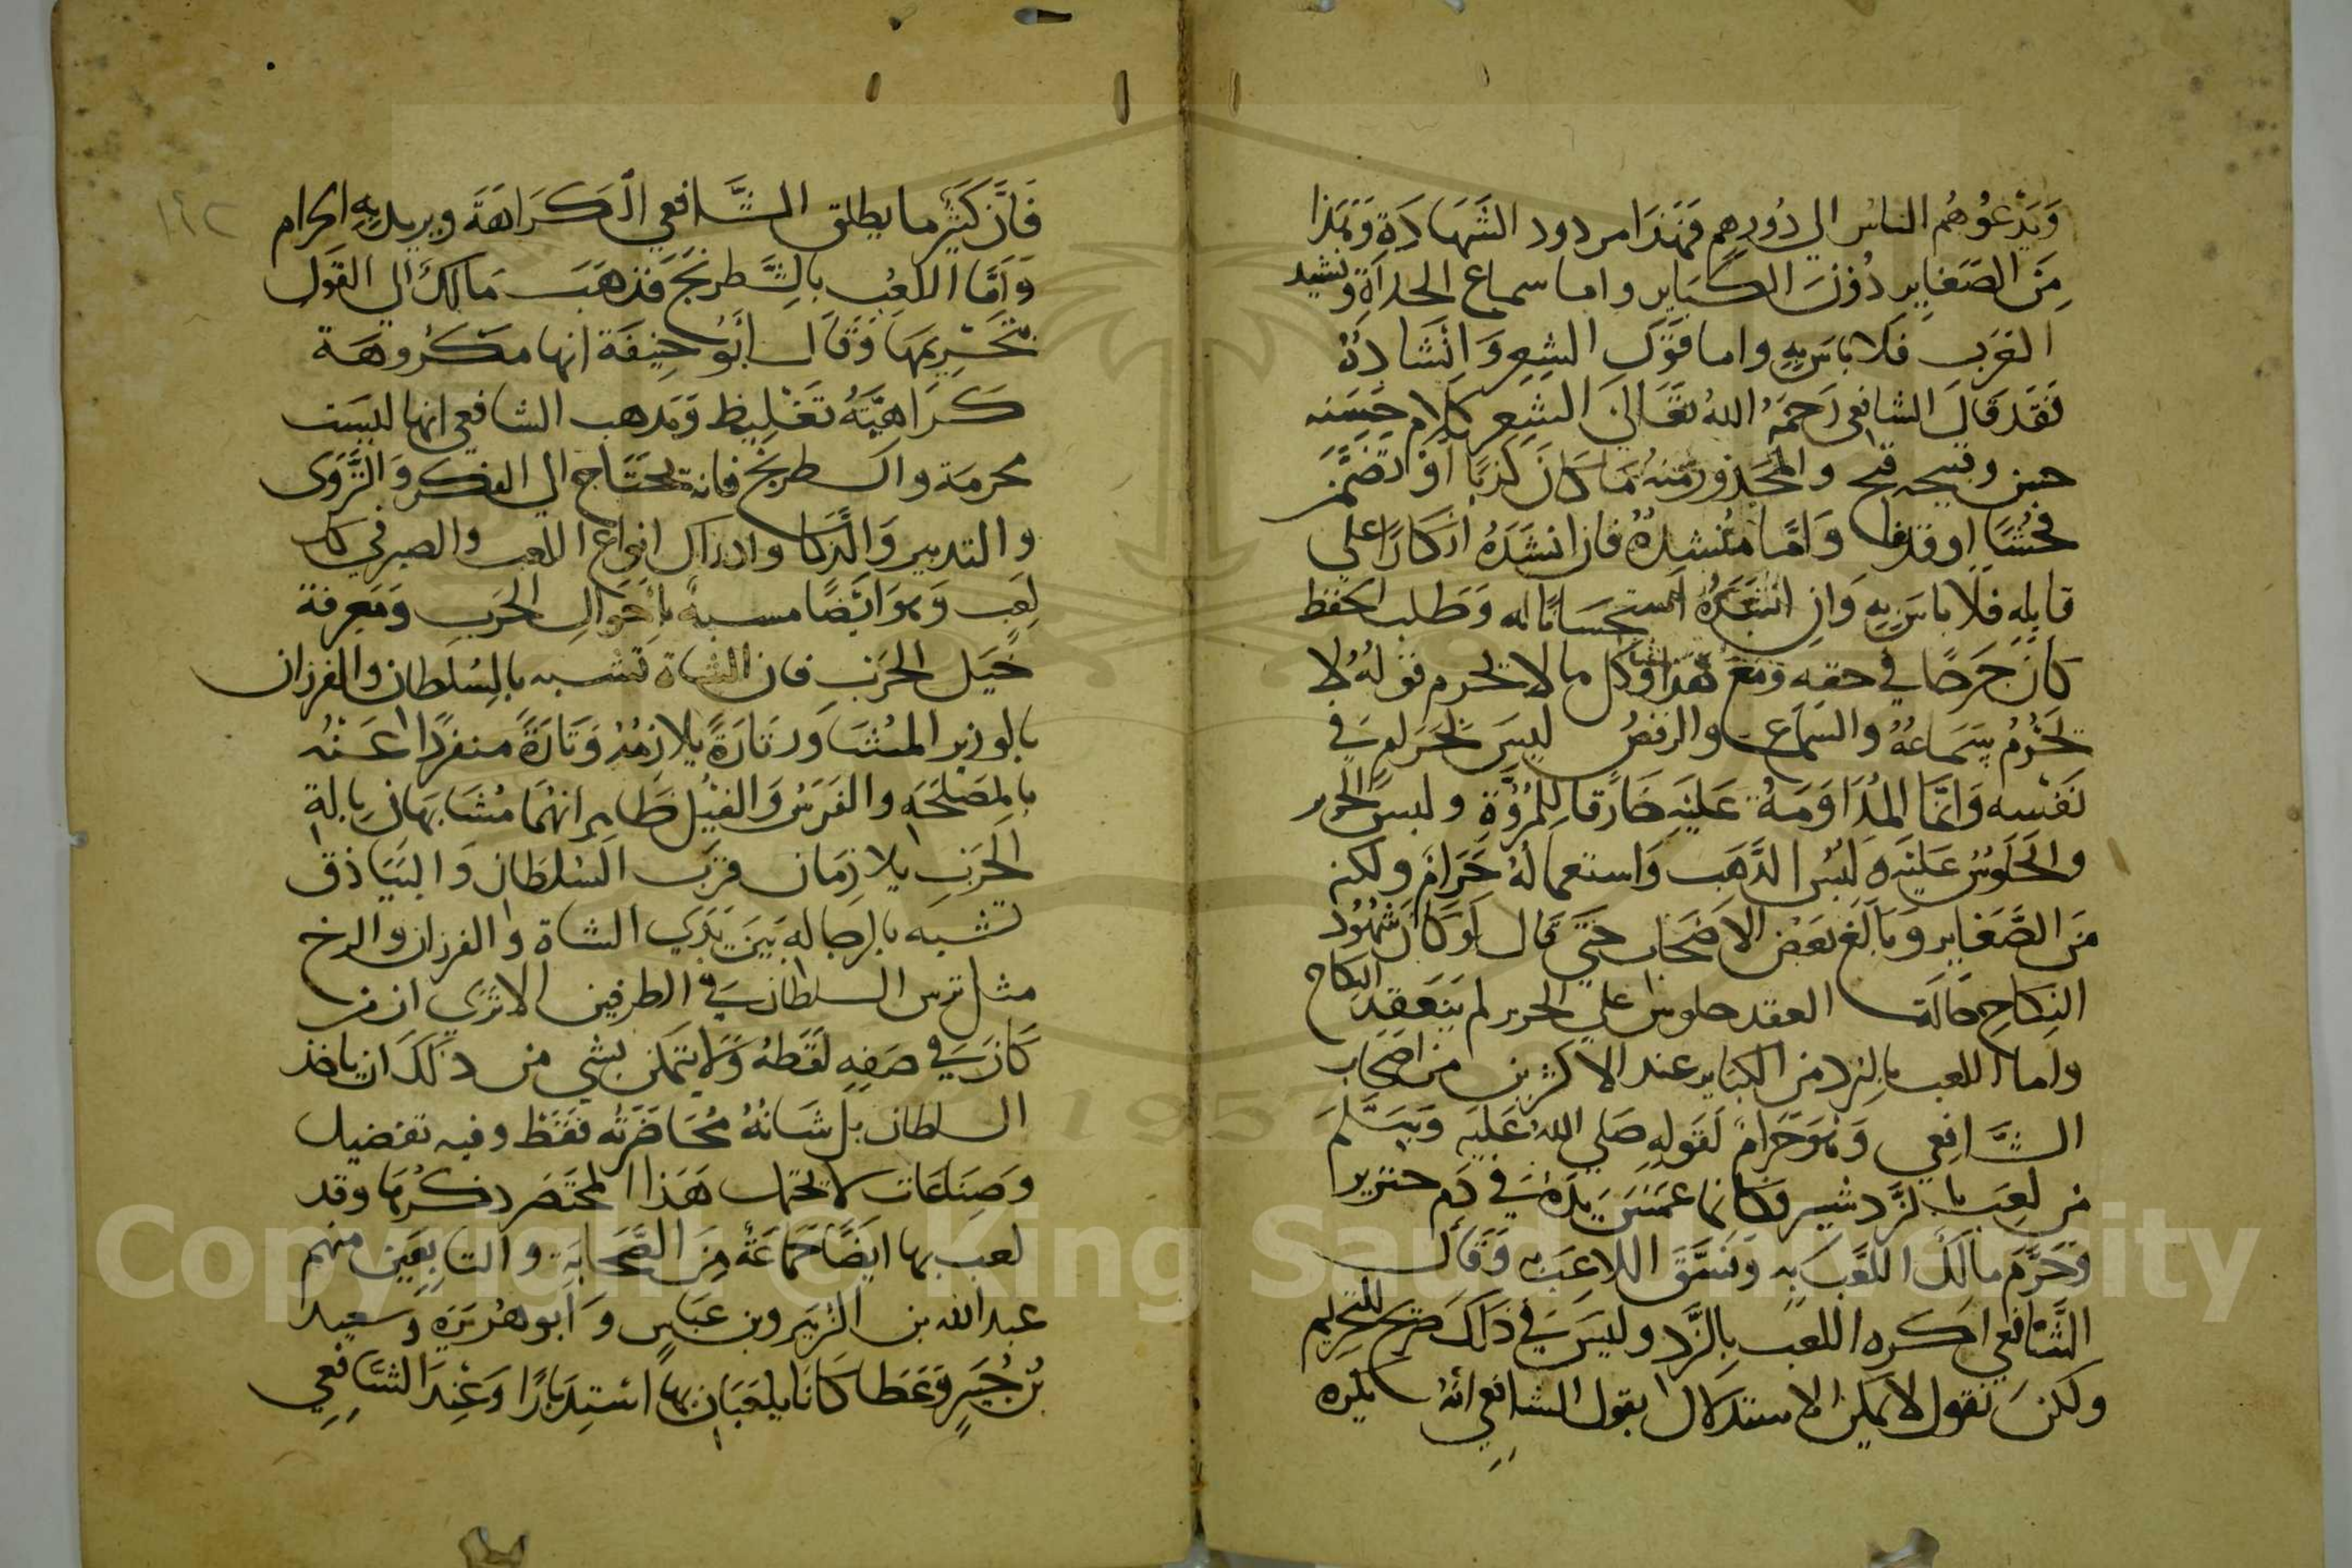 وَيَدْعُوهُم الناسُ الي دُورِهِم فَهَذَا مردود الشَهَادَةِ وَهَذَا
مِنَ الصَغَايِرِ دُونَ الكَبَايِرِ واما سماع الحداةِ ونشيد
العَرَبِ فَلا باسَ بِهِ واما قَوْلُ الشِعِرِ وَانْشَادُهُ
فَقَد قَالَ الشافعي رَحِمَهُ اللهُ تَعَالَى الشِعِر كَلام حَسَنه
حسن وقبيحه قبيح والمحَذور مِنهُ مَا كَانَ كَذِبًا اَوْ تَضَمَّنَ
فُحْشًا او قذفا وَامَّا مُنْشِدُهُ فان انشَدَهُ انكَارًا علي
قايِلِهِ فلا باسَ بِهِ وَانِ انشَدَهُ استحسَانًا له وَطَلب الحفظ
كَانَ جَرحًا في حقه وَمَعَ هَذا وكل ما لا يحرم قولُهُ لا
يَحْرُمُ سَمَاعُهُ والسَماع والرقصُ ليسَ بمحَرم في
نَفْسِه وَانَّمَا المُدَاوَمَةُ عَليْهِ خَارقا لِلمُرُوَّةِ ولبس الحرير
والجلوسُ عَليْهِ وَلبْس الذَهَبِ وَاستعمالهُ حَرَامٌ ولكنه
مَنَ الصَّغَاير وَبَالَغَ بَعْض الاصْحَاب حَتَّى قَال لَو كَانَ شُهُود
النِكَاحِ حَالَة العقد جلوسا علي الحرير لم يَنعَقِد النكاح
واما اللعب بالنرد من الكبَاير عند الاكثرين من اصحَاب
الشَّافِعِي وَهوَ حَرَام لقَولِهِ صَلي اللهُ عَليْهِ وَسَلَّمَ
من لعِبَ بالنَّرد شير فكَانما غَمَسَ يَدَهُ في دَم خنزير
وَحَرَّمَ مالكُ اللَّعِب بِهِ وَفسَّقَ اللاعِبَ بهِ وَقَالَ
الشَّافِعي اكَره اللعب بِالنَّرد وليسَ في ذَلكَ صَريح للتحريم
ولكنَ نقول لا يمكن الاستدلال بقول الشافعي انهُ يكره
١٦٢
فَانَّ كثيرًا ما يطلق الشَّافعي الكَرَاهَةَ ويريد بِهِ الحرام
وَامَّا اللعِبُ بالشِّطرنجِ فَذهَبَ مَالِكُ الي القَول
بتَحْرِيمهَا وَقَالَ أبُو حنِيفَة انها مَكرُوهَة
كَرَاهِيَّةُ تَغْليظ وَمَذهب الشافعي انها ليسَت
محرمَة والشطرنج فانه يحتَاج الي الفكر وَالتَّرَوِّى
والتدبير وَالذكَاء وادراك انواع اللعب والصبر في كل
لعب وَهوَ ايْضًا مشبه باحْوَالِ الحرَب وَمَعرفة
خَيل الحَربِ فان الشاة تشبه بالسُلطان والفرزان
بالوزير المشَاور تَارَةً يلازِمُهُ وَتَارَةً منفَردًا عَنْهُ
بالمَصلَحَةِ والفَرَسُ وَالفِيْل ظَاهِر انهُمَا مُشَابهَان بالة
الحَرَبِ يلازمَان قرَبَ السُلطَان وَالبَيَاذق
تشبه بالرجالة بَينَ يَدَي الشاة والفرزان والرخ
مثل ترس السلطان في الطرفين الا تري ان من
كَانَ في صَفِهِ لقَطهُ وَلا يتمَكن بشي من ذلكَ ان ياخذ
السلطان بل شَانهُ مُحَاضَرَتُه فقَط وفيه تفضيل
وَصِنَاعَات لا يحتمل هَذا المختَصَر ذكرُهَا وقد
لعب بها ايضًا جَمَاعَةُ مِنَ الصَّحَابَةِ والتابِعيَن منهم
عبد الله بن الزُبَير وبن عَبَاسٍ وَابو هُرَيرَةِ وَسعيد
بْن جُبَيرٍ وَعَطا كَانَا يلعَبَان بهَا اسْتِدبَارًا وَعِندَ الشَّافِعِي